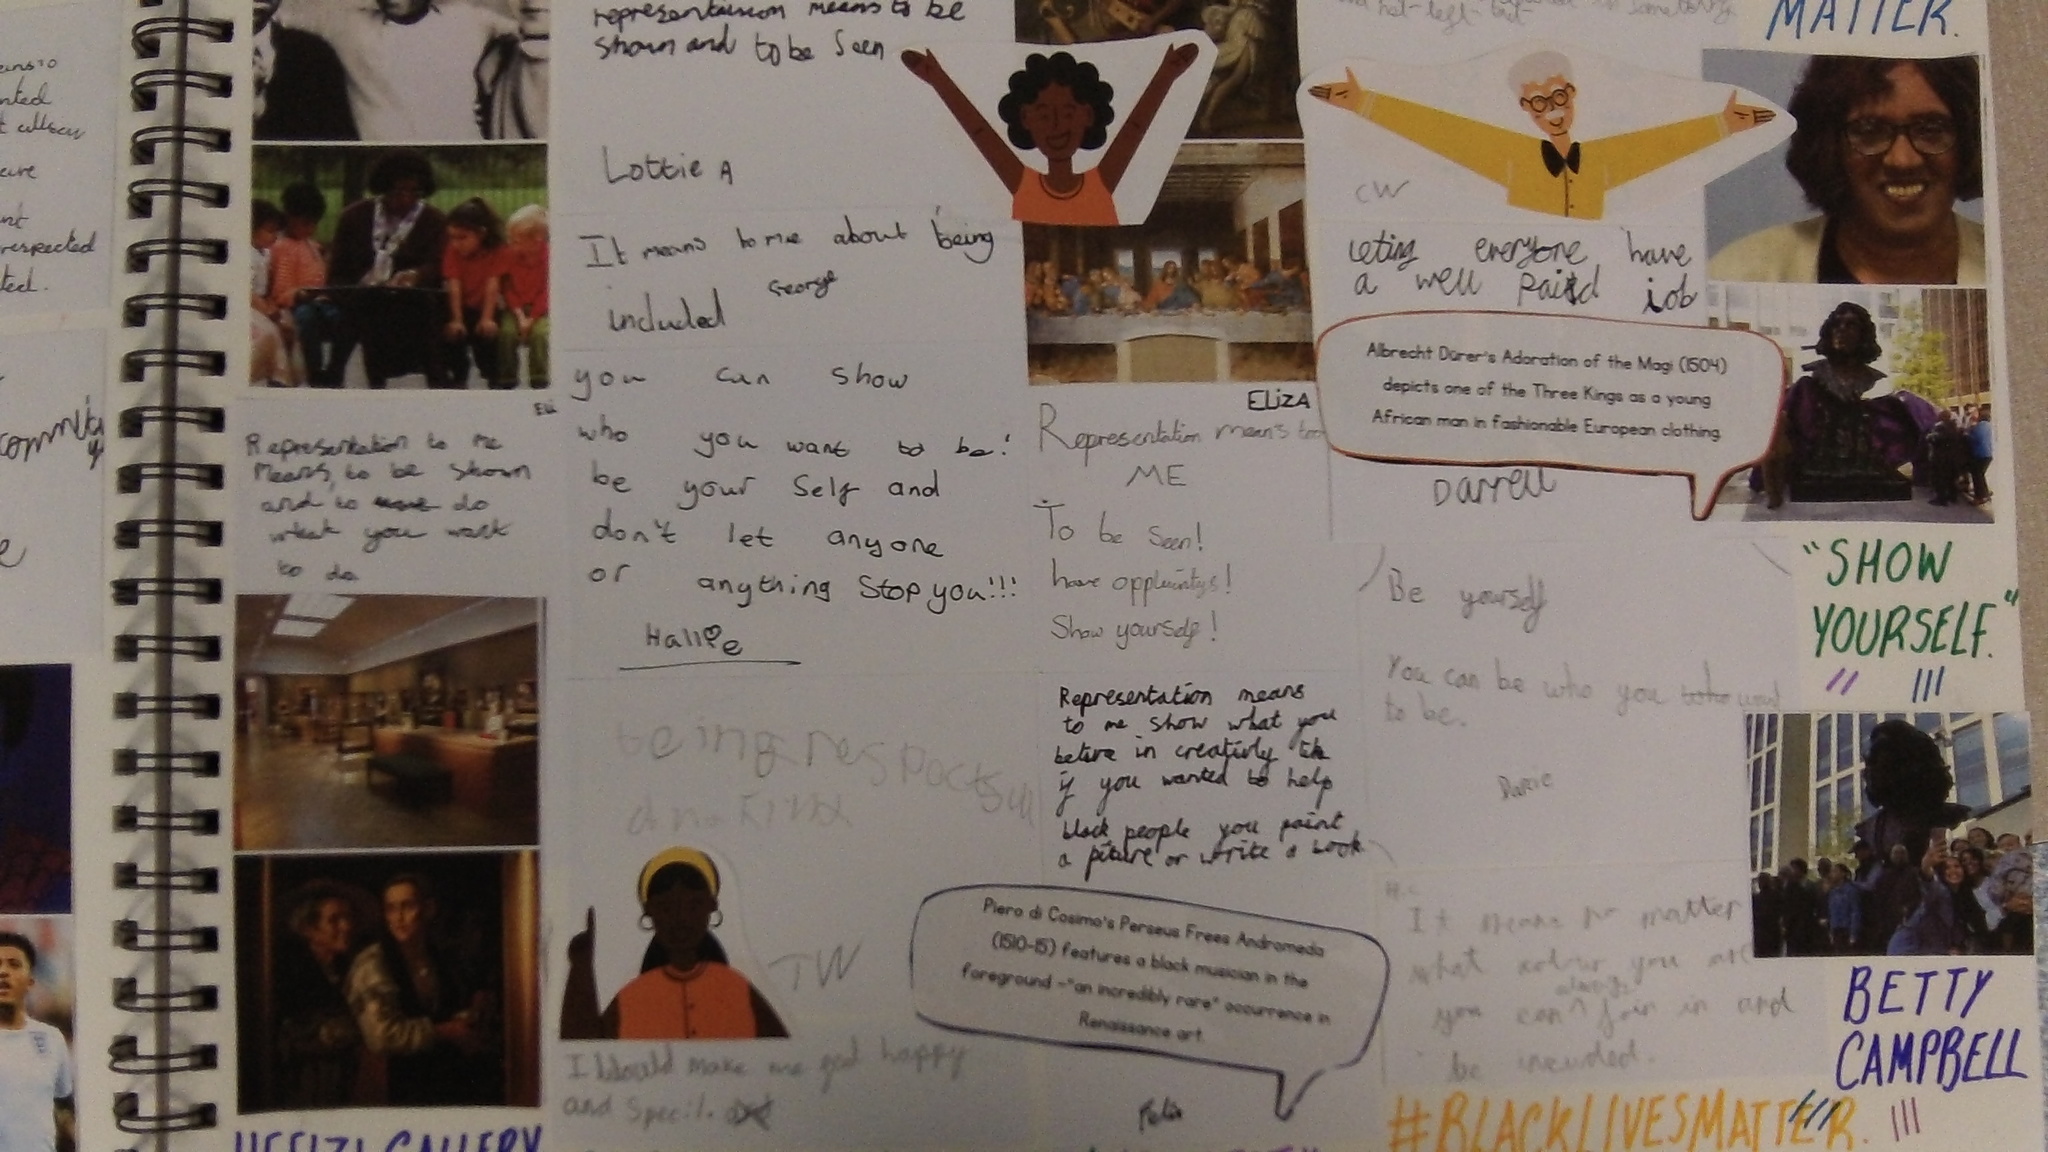 nted
respected
representation means to be
shown and to be Seen
Lottie A
It means to me about being
included
George
you can show
who you want to be!
be your Self and
don't let anyone
or anything Stop you!!!
Hallie
being respectful
and kind
TW
I would make me feel happy
and
Eli
Representation to me
Means, to be shown
and to do
what you want
to do
UFFIZI GALLERY
ELIZA
Representation means too
ME
To be Seen!
have oppluintys!
Show yourself!
Representation means
to me show what you
belive in creativly like
if you wanted to help
black people you paint
a picture or write a book
Piero di Cosimo's Perseus Frees Andromeda
(1510-15) features a black musician in the
foreground -"an incredibly rare" occurrence in
Renaissance art.
Felix
CW
leting everyone have
a well paid job
Albrecht Dürer's Adoration of the Magi (1504)
depicts one of the Three Kings as a young
African man in fashionable European clothing.
Darrell
Be yourself
You can be who you want
to be.
H.C
It means no matter
what colour you are
you can always join in and
be included.
#BLACKLIVESMATTER.
MATTER.
"SHOW
YOURSELF."
BETTY
CAMPBELL